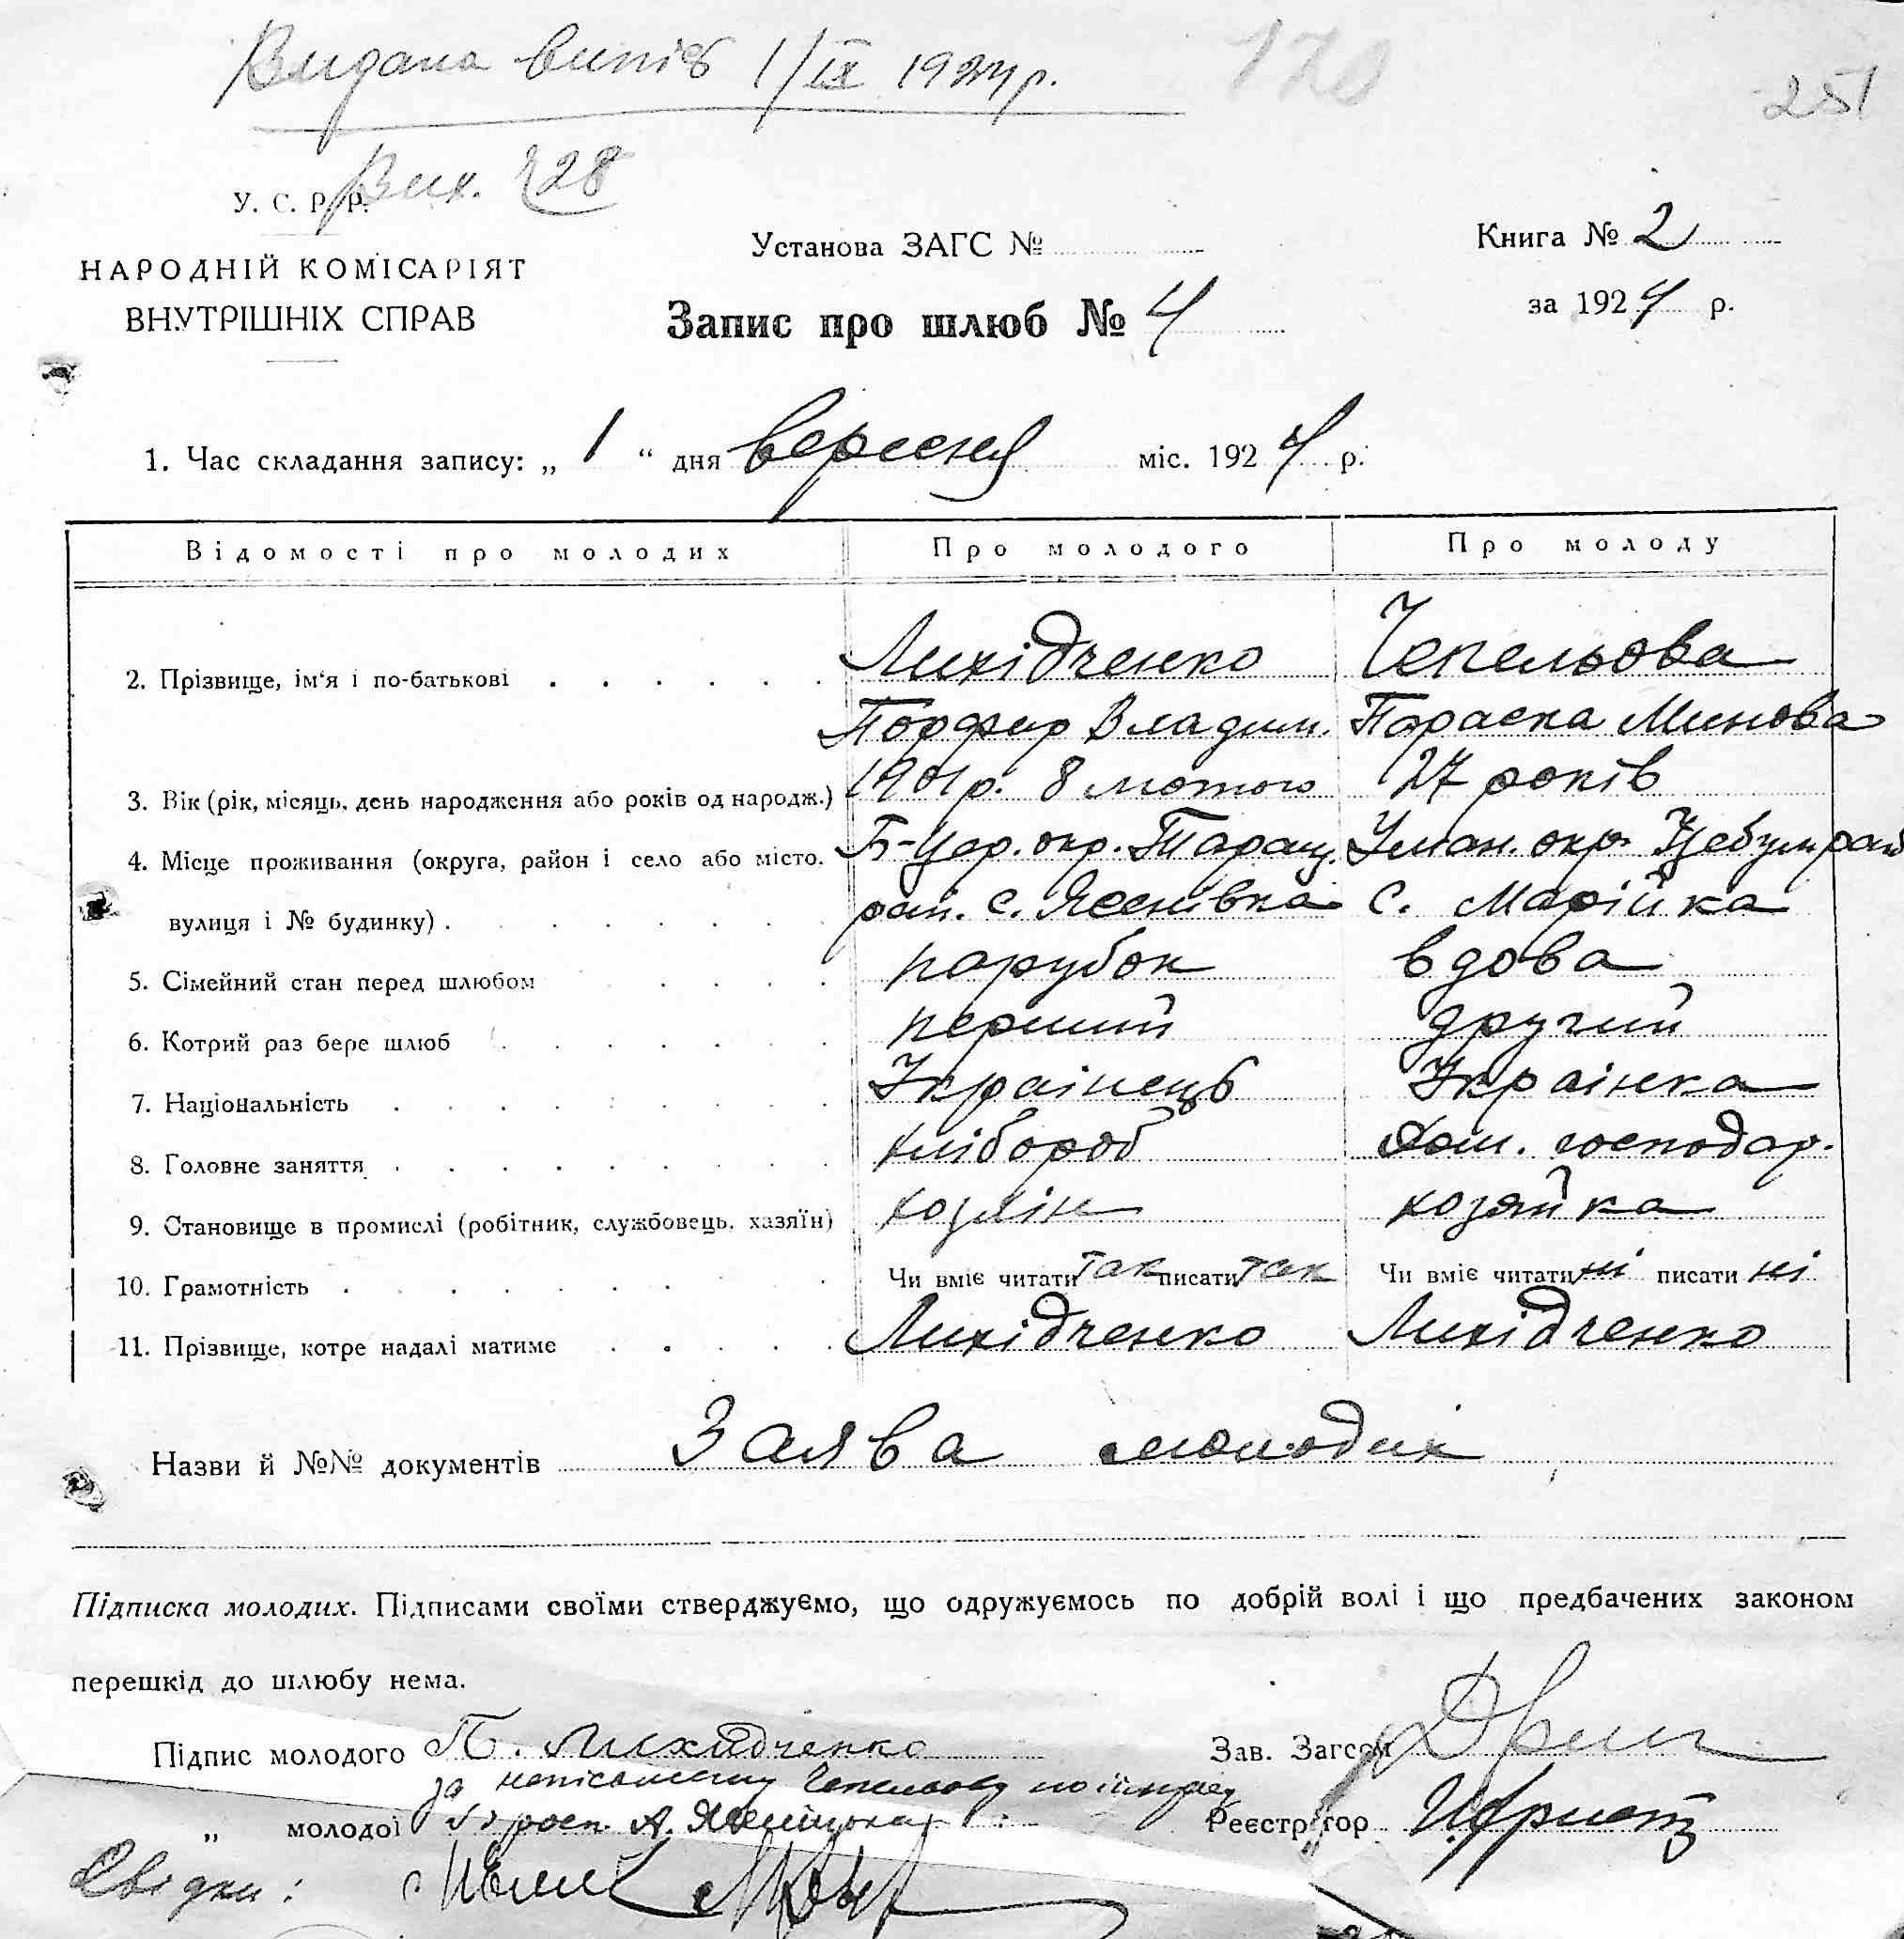 Видана випис 1/IX 1924 р.
170
251
Вих. 728
У. С. Р. Р.
НАРОДНІЙ КОМІСАРІЯТ
ВНУТРІШНІХ СПРАВ
Установа ЗАГС №
Книга № 2
Запис про шлюб № 4
за 1924 р.
1. Час складання запису: „ 1 “ дня вересня міс. 1924 р.
Відомості про молодих Про молодого Про молоду
2. Прізвище, ім'я і по-батькові Лихідченко Чепельова
Порфир Владим. Параска Минова
3. Вік (рік, місяць, день народження або років од народж.) 1901 р. 8 лютого 27 років
4. Місце проживання (округа, район і село або місто. Б-Цер. окр. Таращ. Уман. окр. район
вулиця і № будинку) рай. с. Ясенівка с. Марійка
5. Сімейний стан перед шлюбом парубок вдова
6. Котрий раз бере шлюб перший другий
7. Національність Українець Українка
8. Головне заняття хлібороб дом. господар.
9. Становище в промислі (робітник, службовець. хазяїн) хозяін хозяйка
10. Грамотність Чи вміє читати так писати так Чи вміє читати ні писати ні
11. Прізвище, котре надалі матиме Лихідченко Лихідченко
Назви й №№ документів Заява молодих
Підписка молодих. Підписами своїми стверджуємо, що одружуємось по добрій волі і що предбачених законом
перешкід до шлюбу нема.
Підпис молодого П. Лихидченко Зав. Загсом
за неписьменну Чепельову
„ молодої А. Реєстратор
Свідки: